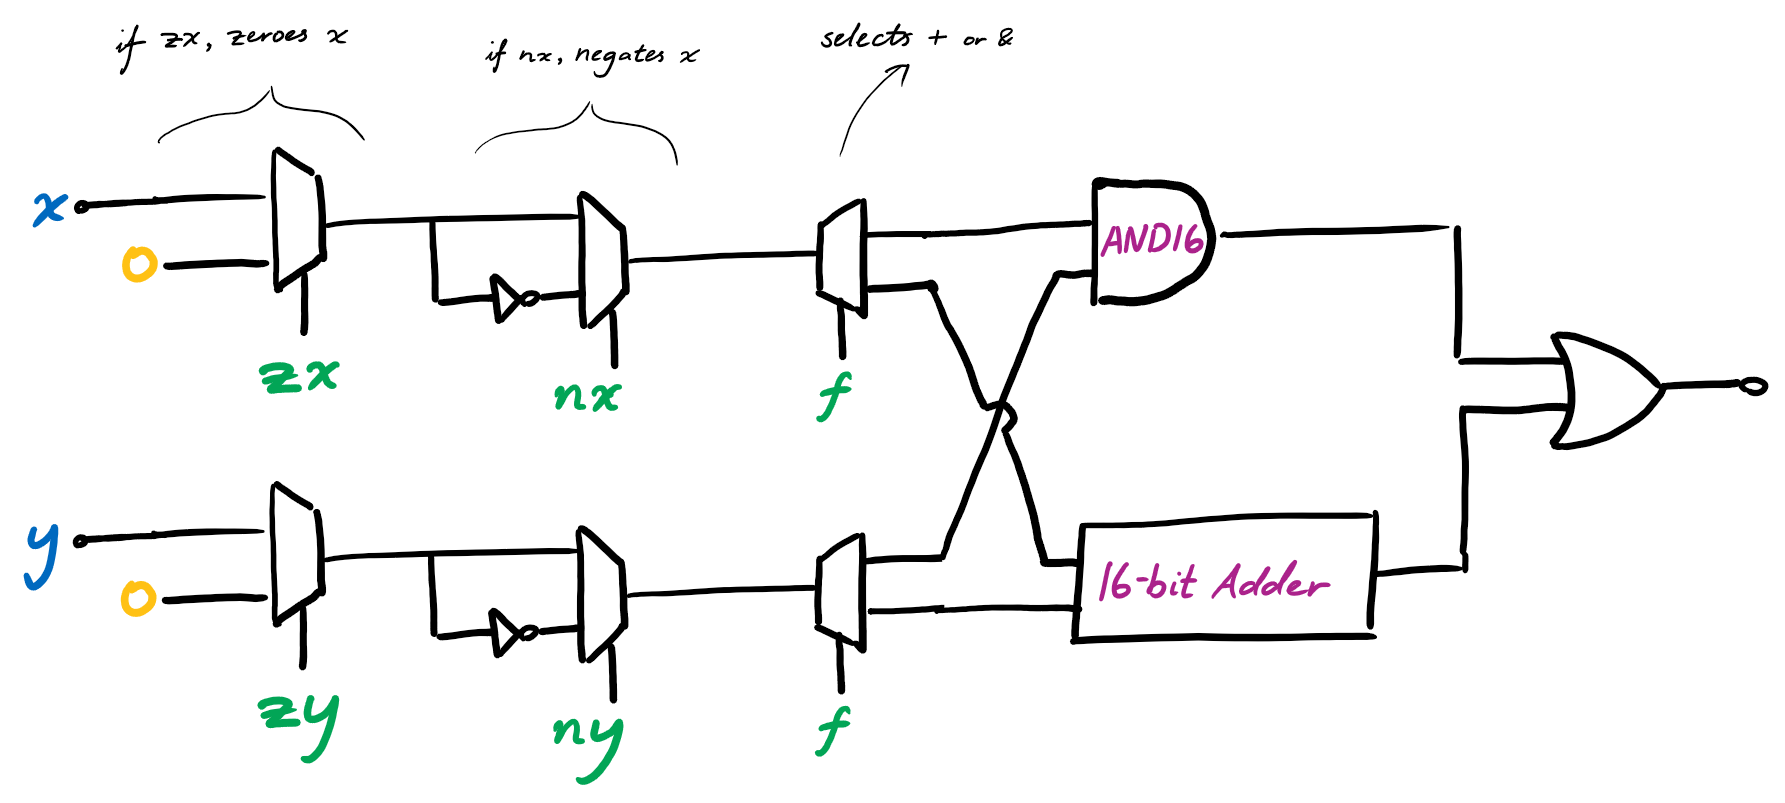 if zx, zeroes x
if nx, negates x
selects + or &
x
0
zx
nx
f
AND16
y
0
zy
ny
f
16-bit Adder